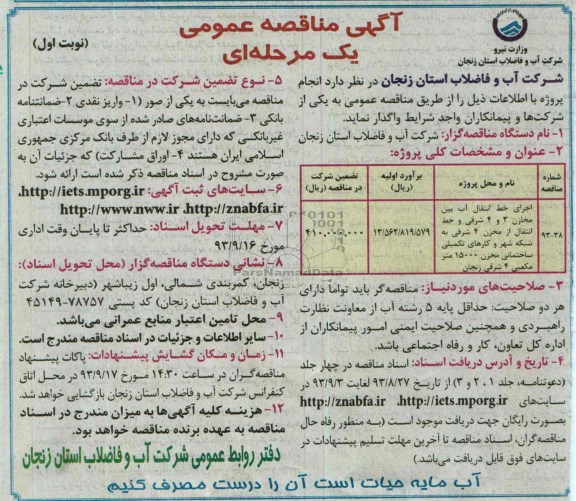 آگهی مناقصه عمومی
یک مرحله‌ای
(نوبت اول)
وزارت نیرو
شرکت آب و فاضلاب استان زنجان
شرکت آب و فاضلاب استان زنجان در نظر دارد انجام
پروژه با اطلاعات ذیل را از طریق مناقصه عمومی به یکی از
شرکت‌ها و پیمانکاران واجد شرایط واگذار نماید.
۱- نام دستگاه مناقصه‌گزار: شرکت آب و فاضلاب استان زنجان
۲- عنوان و مشخصات کلی پروژه:
شماره مناقصه | نام و محل پروژه | برآورد اولیه (ریال) | تضمین شرکت در مناقصه (ریال)
۹۳-۳۸ | اجرای خط انتقال آب بین مخازن ۳ و ۴ شرقی و خط انتقال از مخزن ۴ شرقی به شبکه شهر و کارهای تکمیلی ساختمانی مخزن ۱۵۰۰۰ متر مکعبی ۴ شرقی زنجان | ۱۳/۵۶۲/۸۱۹/۵۷۹ | ۴۱۰/۰۰۰/۰۰۰
۳- صلاحیت‌های موردنیاز: مناقصه‌گر باید تواما دارای
هر دو صلاحیت: حداقل پایه ۵ رشته آب از معاونت نظارت
راهبردی و همچنین صلاحیت ایمنی امور پیمانکاران از
اداره کل تعاون، کار و رفاه اجتماعی باشد.
۴- تاریخ و آدرس دریافت اسناد: اسناد مناقصه در چهار جلد
(دعوتنامه، جلد ۱، ۲ و ۳) از تاریخ ۹۳/۸/۲۷ لغایت ۹۳/۹/۳ در
سایت‌های http://iets.mporg.ir، http://znabfa.ir
بصورت رایگان جهت دریافت موجود است (به منظور رفاه حال
مناقصه‌گران، اسناد مناقصه تا آخرین مهلت تسلیم پیشنهادات در
سایت‌های فوق قابل دریافت می‌باشد.)
۵- نوع تضمین شرکت در مناقصه: تضمین شرکت در
مناقصه می‌بایست به یکی از صور (۱- واریز نقدی ۲- ضمانتنامه
بانکی ۳- ضمانتنامه‌های صادر شده از سوی موسسات اعتباری
غیربانکی که دارای مجوز لازم از طرف بانک مرکزی جمهوری
اسلامی ایران هستند ۴- اوراق مشارکت) که جزئیات آن به
صورت مشروح در اسناد مناقصه ذکر شده است ارائه شود.
۶- سایت‌های ثبت آگهی: http://iets.mporg.ir،
http://znabfa.ir، http://www.nww.ir
۷- مهلت تحویل اسناد: حداکثر تا پایان وقت اداری
مورخ ۹۳/۹/۱۶
۸- نشانی دستگاه مناقصه‌گزار (محل تحویل اسناد):
زنجان، کمربندی شمالی، اول زیباشهر (دبیرخانه شرکت
آب و فاضلاب استان زنجان) کد پستی ۷۸۷۵۷-۴۵۱۴۹
۹- محل تامین اعتبار منابع عمرانی می‌باشد.
۱۰- سایر اطلاعات و جزئیات در اسناد مناقصه مندرج است.
۱۱- زمان و مکان گشایش پیشنهادات: پاکات پیشنهاد
مناقصه‌گران در ساعت ۱۴:۳۰ مورخ ۹۳/۹/۱۷ در محل اتاق
کنفرانس شرکت آب و فاضلاب استان زنجان بازگشایی خواهد شد.
۱۲- هزینه کلیه آگهی‌ها به میزان مندرج در اسناد
مناقصه به عهده برنده مناقصه خواهد بود.
دفتر روابط عمومی شرکت آب و فاضلاب استان زنجان
آب مایه حیات است آن را درست مصرف کنیم
ParsNamadData